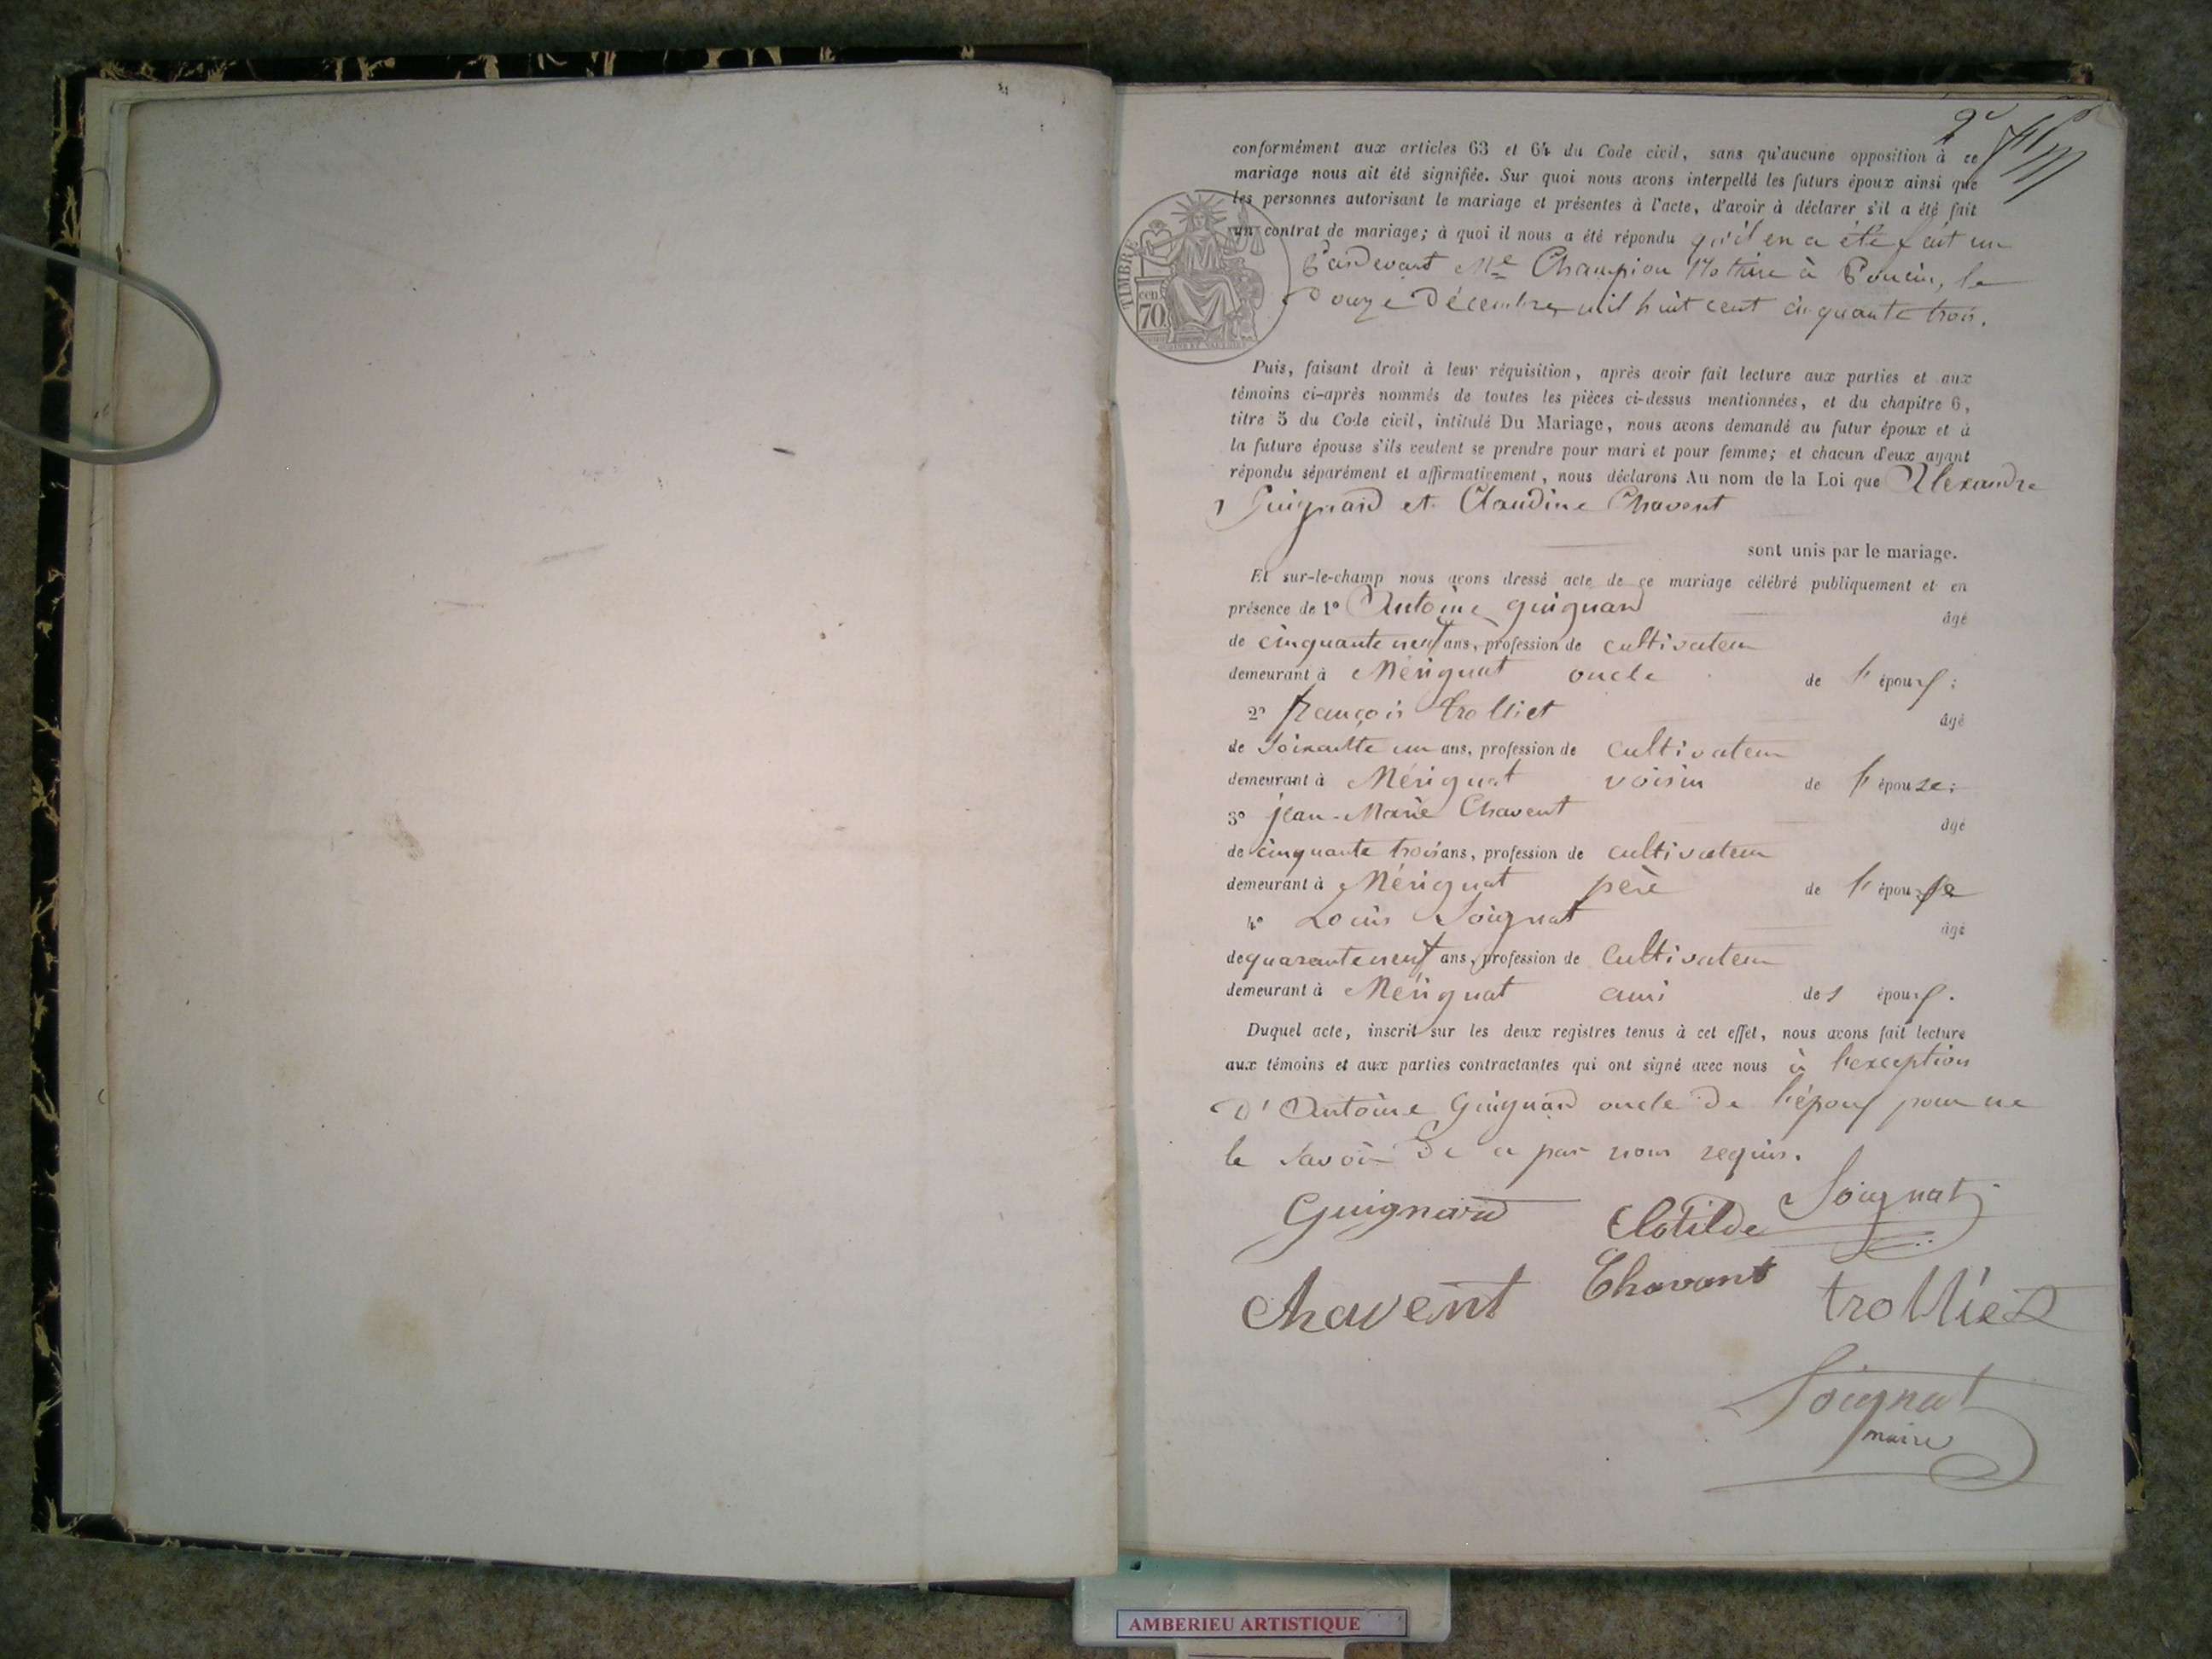 2e
conformément aux articles 63 et 64 du Code civil, sans qu'aucune opposition à ce
mariage nous ait été signifiée. Sur quoi nous avons interpellé les futurs époux ainsi que
les personnes autorisant le mariage et présentes à l'acte, d'avoir à déclarer s'il a été fait
un contrat de mariage; à quoi il nous a été répondu qu'il en a été fait un
Pardevant Me Champion Notaire à Poncin, le
Douze Décembre mil huit cent cinquante trois.
TIMBRE
cen.
70
Puis, faisant droit à leur réquisition, après avoir fait lecture aux parties et aux
témoins ci-après nommés de toutes les pièces ci-dessus mentionnées, et du chapitre 6,
titre 5 du Code civil, intitulé Du Mariage, nous avons demandé au futur époux et à
la future épouse s'ils veulent se prendre pour mari et pour femme; et chacun d'eux ayant
répondu séparément et affirmativement, nous déclarons Au nom de la Loi que Alexandre
Guignard et Claudine Chavent
sont unis par le mariage.
Et sur-le-champ nous avons dressé acte de ce mariage célébré publiquement et en
présence de 1º Antoine guignard âgé
de cinquante neuf ans, profession de cultivateur
demeurant à Mérignat oncle de l'époux;
2º françois trolliet âgé
de Soixante un ans, profession de cultivateur
demeurant à Mérignat voisin de l'épouse;
3º jean-Marie Chavent âgé
de cinquante trois ans, profession de cultivateur
demeurant à Mérignat père de l'épouse
4º Louis Soignat âgé
de quarante neuf ans, profession de Cultivateur
demeurant à Mérignat ami des époux.
Duquel acte, inscrit sur les deux registres tenus à cet effet, nous avons fait lecture
aux témoins et aux parties contractantes qui ont signé avec nous à l'exception
D'Antoine Guignard oncle de l'époux pour ne
le Savoir De ce par nous requis.
Guignard Clotilde Soignat
Chavent Chavant trolliet
Soignat
maire
AMBERIEU ARTISTIQUE